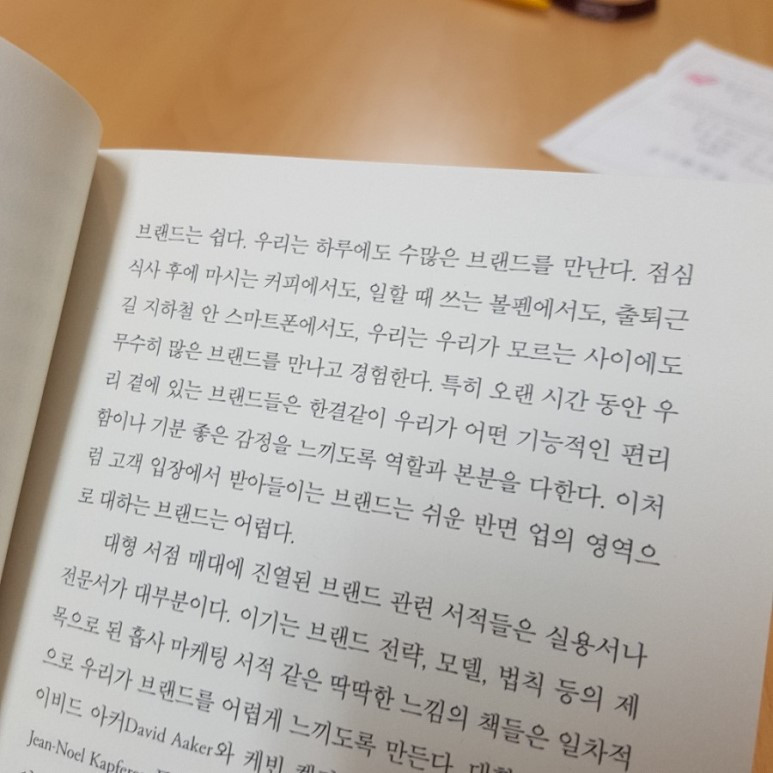 브랜드는 쉽다. 우리는 하루에도 수많은 브랜드를 만난다. 점심
식사 후에 마시는 커피에서도, 일할 때 쓰는 볼펜에서도, 출퇴근
길 지하철 안 스마트폰에서도, 우리는 우리가 모르는 사이에도
무수히 많은 브랜드를 만나고 경험한다. 특히 오랜 시간 동안 우
리 곁에 있는 브랜드들은 한결같이 우리가 어떤 기능적인 편리
함이나 기분 좋은 감정을 느끼도록 역할과 본분을 다한다. 이처
럼 고객 입장에서 받아들이는 브랜드는 쉬운 반면 업의 영역으
로 대하는 브랜드는 어렵다.
대형 서점 매대에 진열된 브랜드 관련 서적들은 실용서나
전문서가 대부분이다. 이기는 브랜드 전략, 모델, 법칙 등의 제
목으로 된 흡사 마케팅 서적 같은 딱딱한 느낌의 책들은 일차적
으로 우리가 브랜드를 어렵게 느끼도록 만든다.
이비드 아커David Aaker와 케빈
Jean-Noel